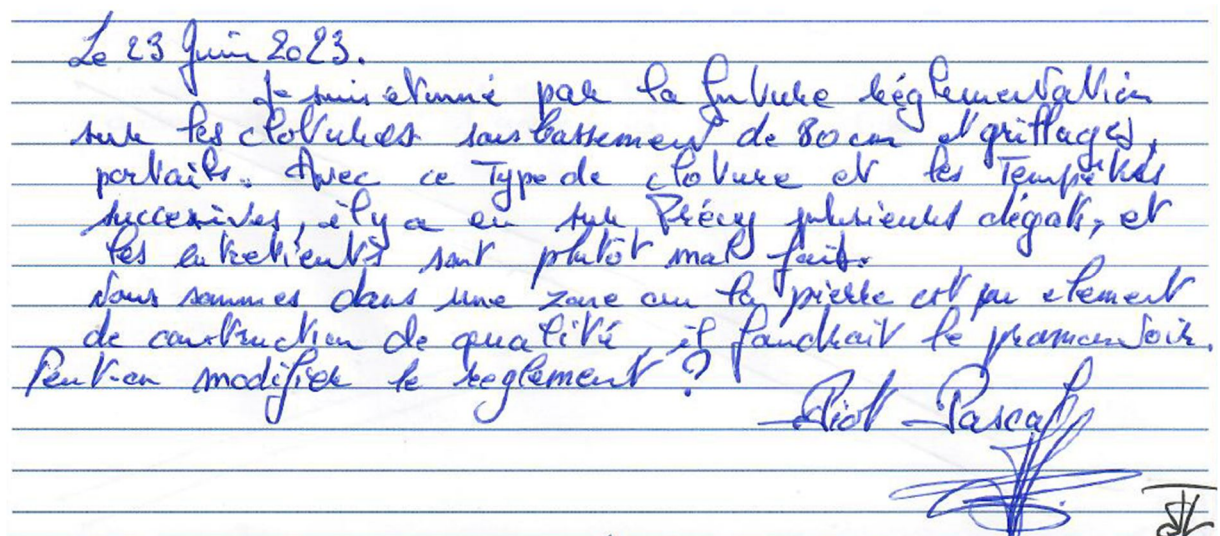 Le 23 Juin 2023.
Je suis étonné par la future réglementation
sur les clotures soubassement de 80 cm et grillages,
portails. Avec ce Type de cloture et les Tempêtes
successives, il y a eu sur Précy plusieurs dégats, et
les entretients sont plutôt mal fait.
Nous sommes dans une zone ou la pierre est un element
de construction de qualité, il faudrait le promouvoir.
Peut-on modifier le reglement ?
Piot Pascal